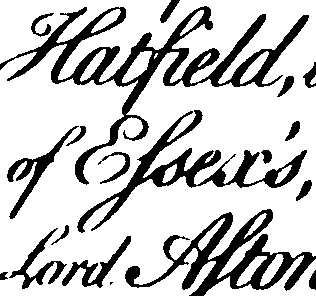 Hatfield,
of Eſsex's,
Lord Aſton